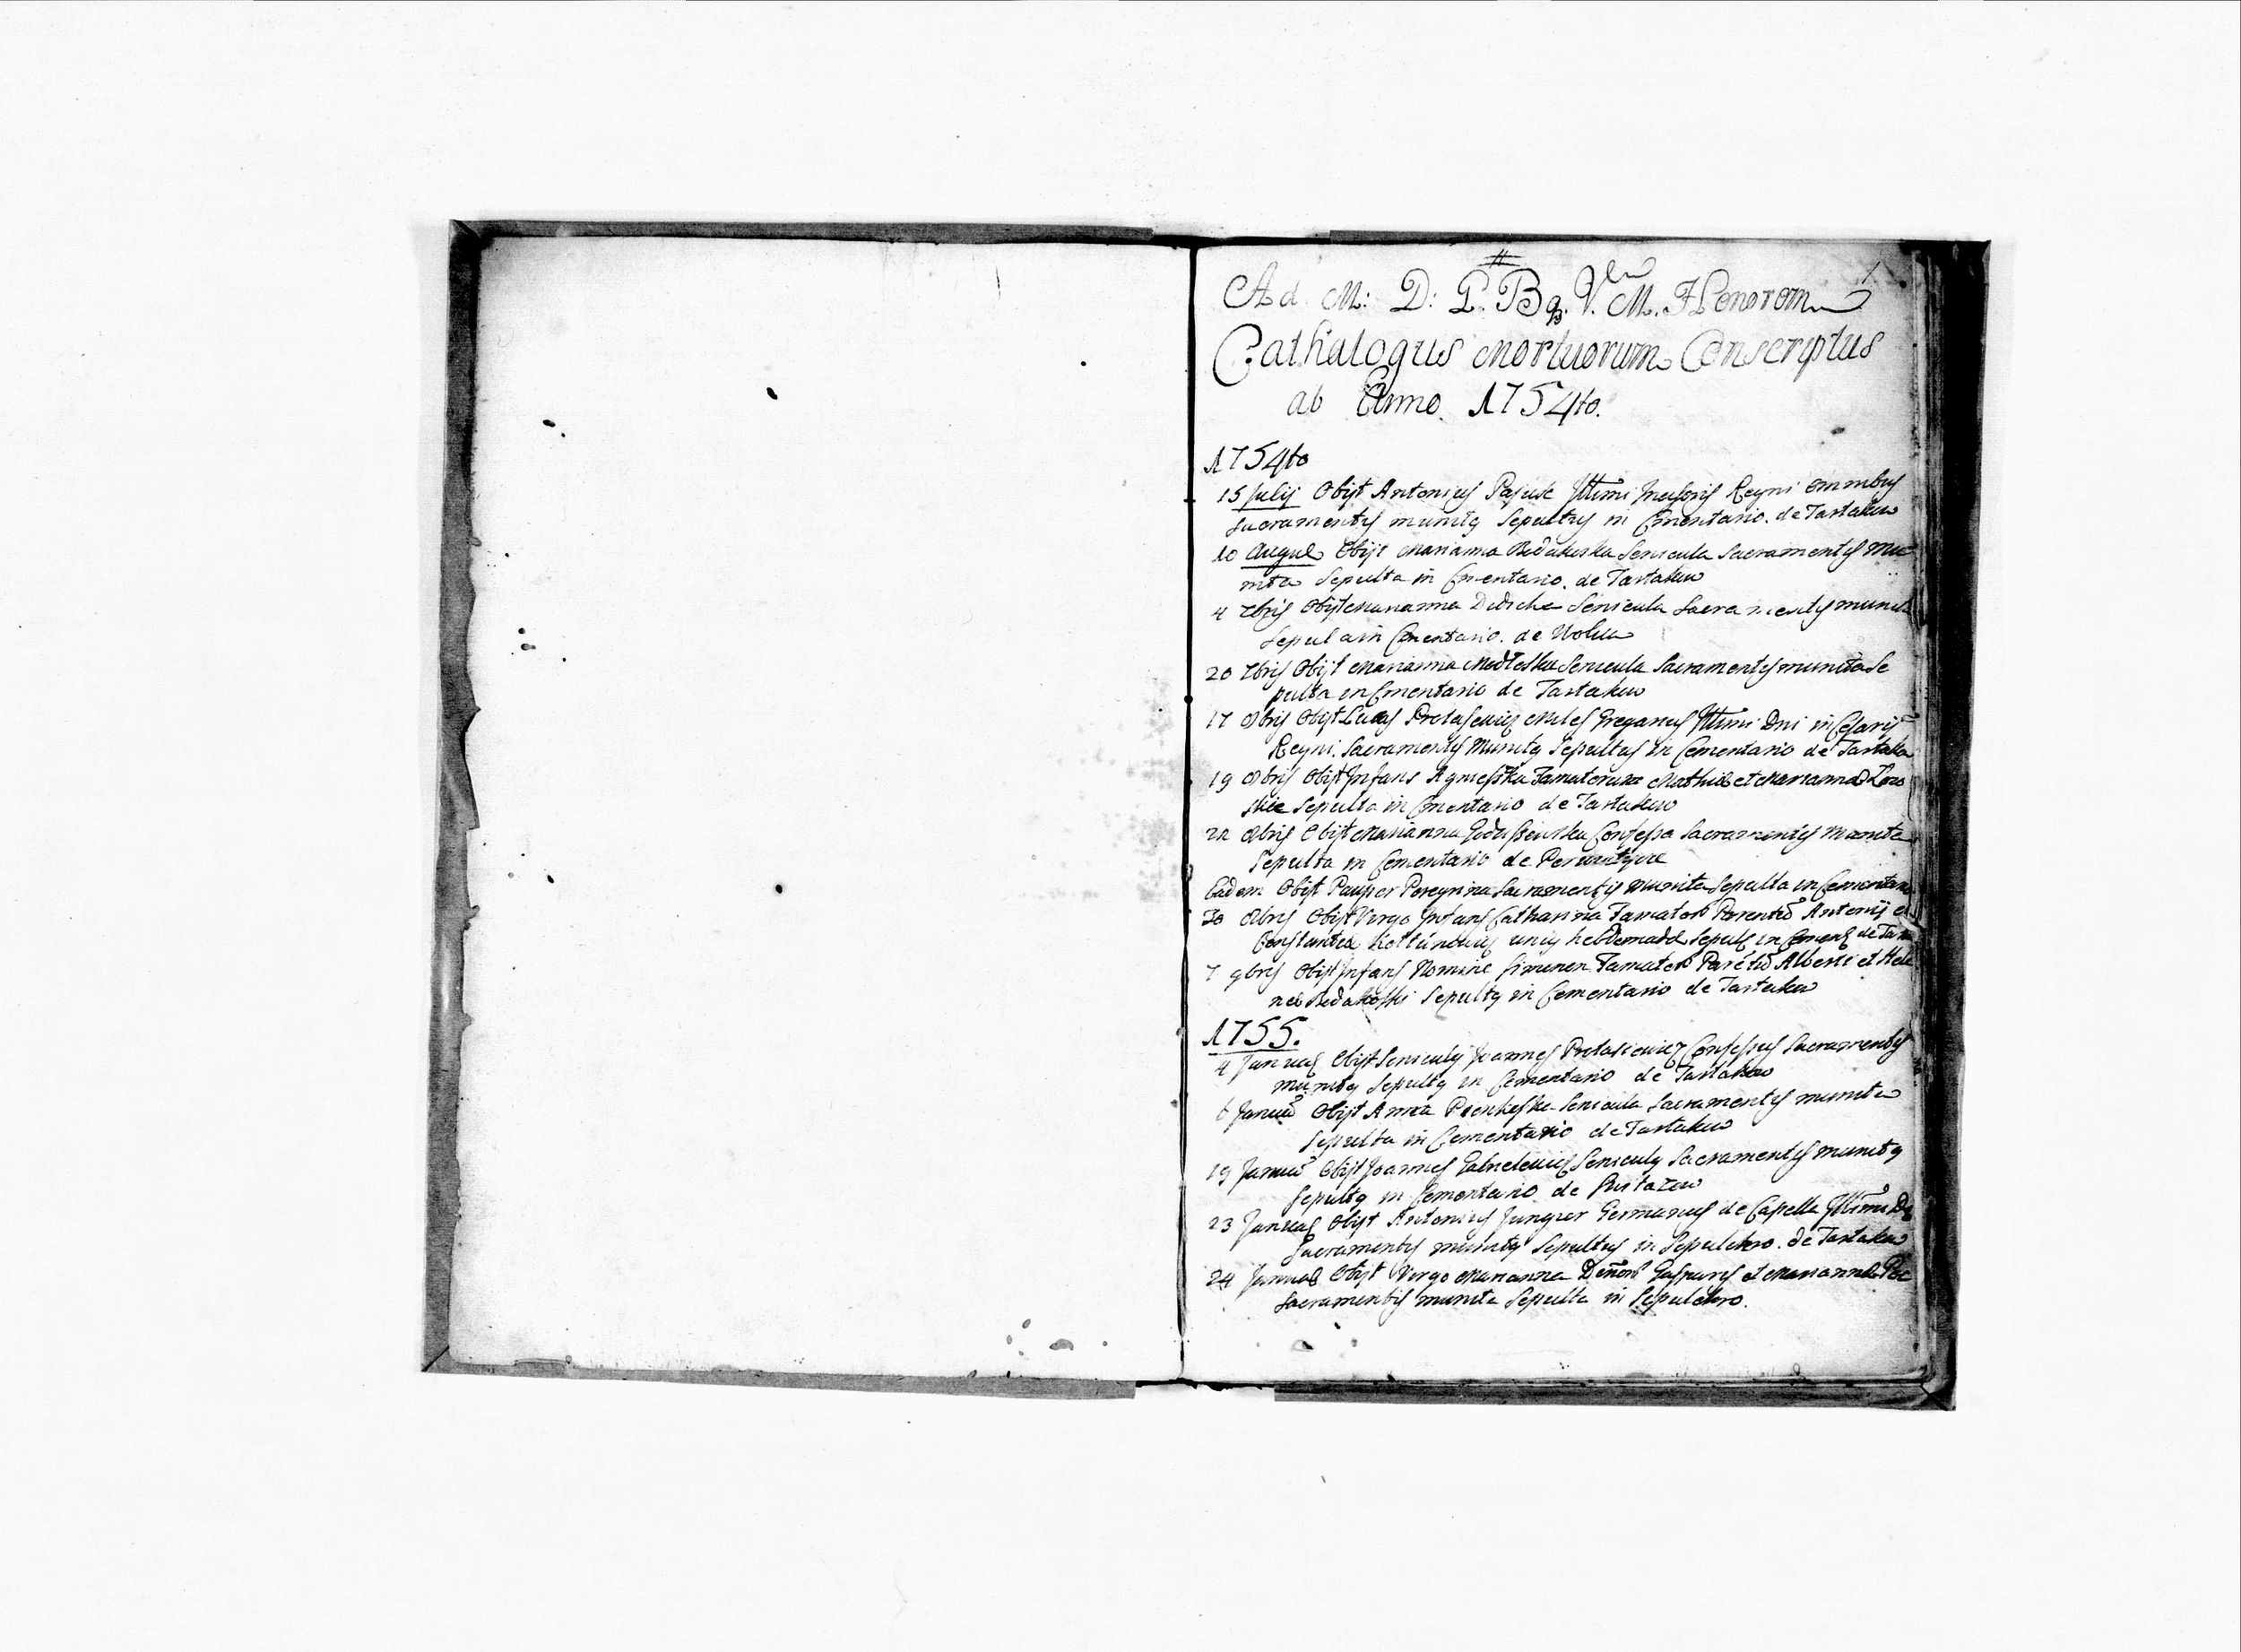 1
Ad M: D: G. B q. V. M. Honorem
Cathalogus Mortuorum Conscriptus
ab Anno 1754to.
1754to
15 Julij Obijt Antonius Illmi Regni omnibus
Sacramentis munitq Sepultus in Cmentario de Tartakuw
10 Augus Obijt Marianna Senicula Sacramentis mu
nita Sepulta in Cmentario de Tartakuw
4 7bris Obijt Marianna Senicula Sacramentis munita
Sepulta in Cmentario de
20 7bris Obijt Marianna Senicula Sacramentis munita Se
pulta in Cmentario de Tartakuw
17 8bris Obijt Lucas Protasewicz Miles Greganus Illmi Dni
Regni Sacramentis Munitq Sepultus in Cementario de Tartaku
19 8bris Obijt Infans Agnieszka Famatorum Mathiæ et Mariannæ
Sepulta in Cmentario de Tartakuw
8bris Obijt Marianna Confessa Sacramentis Munita
Sepulta in Cementario de
Eadem Obijt Pauper Peregrina Sacramentis munita Sepulta in Cementario
30 8bris Obijt Virgo Infans Catharina Famator Parentu Antonij et
Constantiæ unius hebdomadæ Sepult in Cment de
7 9bris Obijt Infans Nomine Simeon Famator Paretu Alberti et Hele
næ Sepultq in Cementario de Tartakuw
1755.
4 Januar Obijt Seniculus Joannes Protasiewicz Confessus Sacramentis
munitq Sepultq in Cementario de Tartakuw
6 Januar Obijt Anna Senicula Sacramentis munita
Sepulta in Cementario de Tartakuw
19 Januar Obijt Joannes Gabrielewicz Seniculq Sacramentis munitq
Sepultq in Cementario de
23 Januar Obijt Antonius Jungier Germanus de Capella Illmi
Sacramentis munitq Sepultus in Sepulchro de Tartakuw
24 Januar Obijt Virgo Marianna Gasparis et Mariannæ
Sacramentis munita Sepulta in Sepulchro.